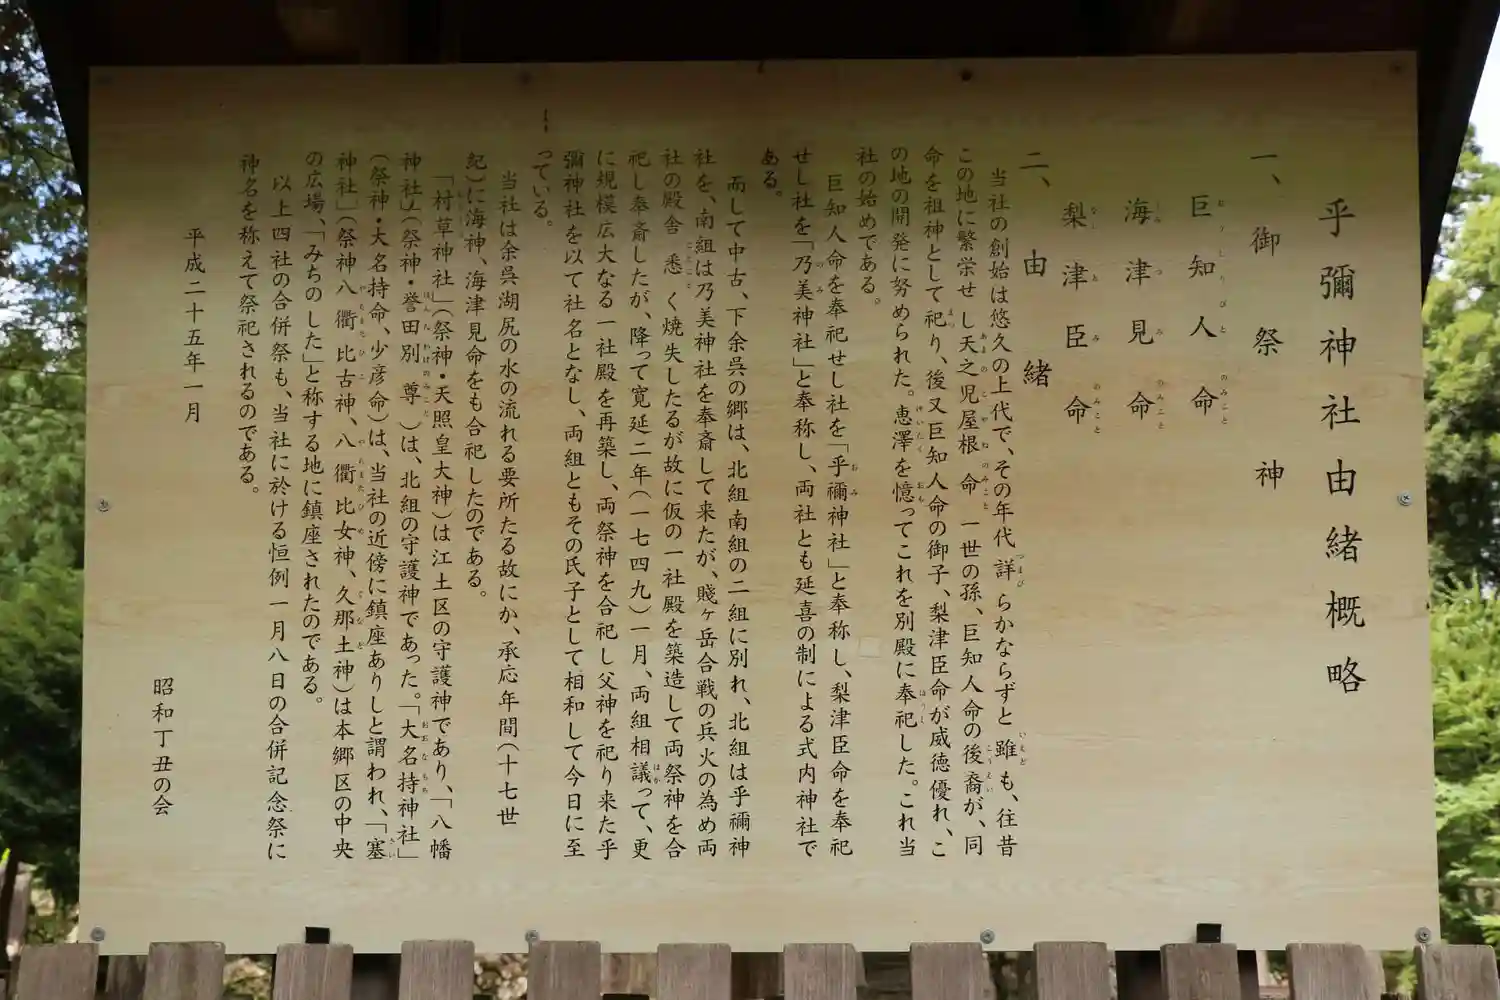 乎彌神社由緒概略
一、御祭神
巨知人命
海津見命
梨津臣命
二、由緒
当社の創始は悠久の上代で、その年代詳らかならずと雖も、往昔
この地に繁栄せし天之児屋根命一世の孫、巨知人命の後裔が、同
命を祖神として祀り、後又巨知人命の御子、梨津臣命が威徳優れ、こ
の地の開発に努められた。恵澤を憶ってこれを別殿に奉祀した。これ当
社の始めである。
巨知人命を奉祀せし社を「乎彌神社」と奉称し、梨津臣命を奉祀
せし社を「乃美神社」と奉称し、両社とも延喜の制による式内神社で
ある。
而して中古、下余呉の郷は、北組南組の二組に別れ、北組は乎彌神
社を、南組は乃美神社を奉斎して来たが、賤ヶ岳合戦の兵火の為め両
社の殿舎悉く焼失したるが故に仮の一社殿を築造して両祭神を合
祀し奉斎したが、降って寛延二年(一七四九)一月、両組相議って、更
に規模広大なる一社殿を再築し、両祭神を合祀し父神を祀り来た乎
彌神社を以て社名となし、両組ともその氏子として相和して今日に至
っている。
当社は余呉湖尻の水の流れる要所たる故にか、承応年間(十七世
紀)に海神、海津見命をも合祀したのである。
「村草神社」(祭神・天照皇大神)は江土区の守護神であり、「八幡
神社」(祭神・誉田別尊)は、北組の守護神であった。「大名持神社」
(祭神・大名持命、少彦命)は、当社の近傍に鎮座ありしと謂われ、「塞
神社」(祭神八衢比古神、八衢比女神、久那土神)は本郷区の中央
の広場、「みちのした」と称する地に鎮座されたのである。
以上四社の合併祭も、当社に於ける恒例一月八日の合併記念祭に
神名を称えて祭祀されるのである。
平成二十五年一月
昭和丁丑の会